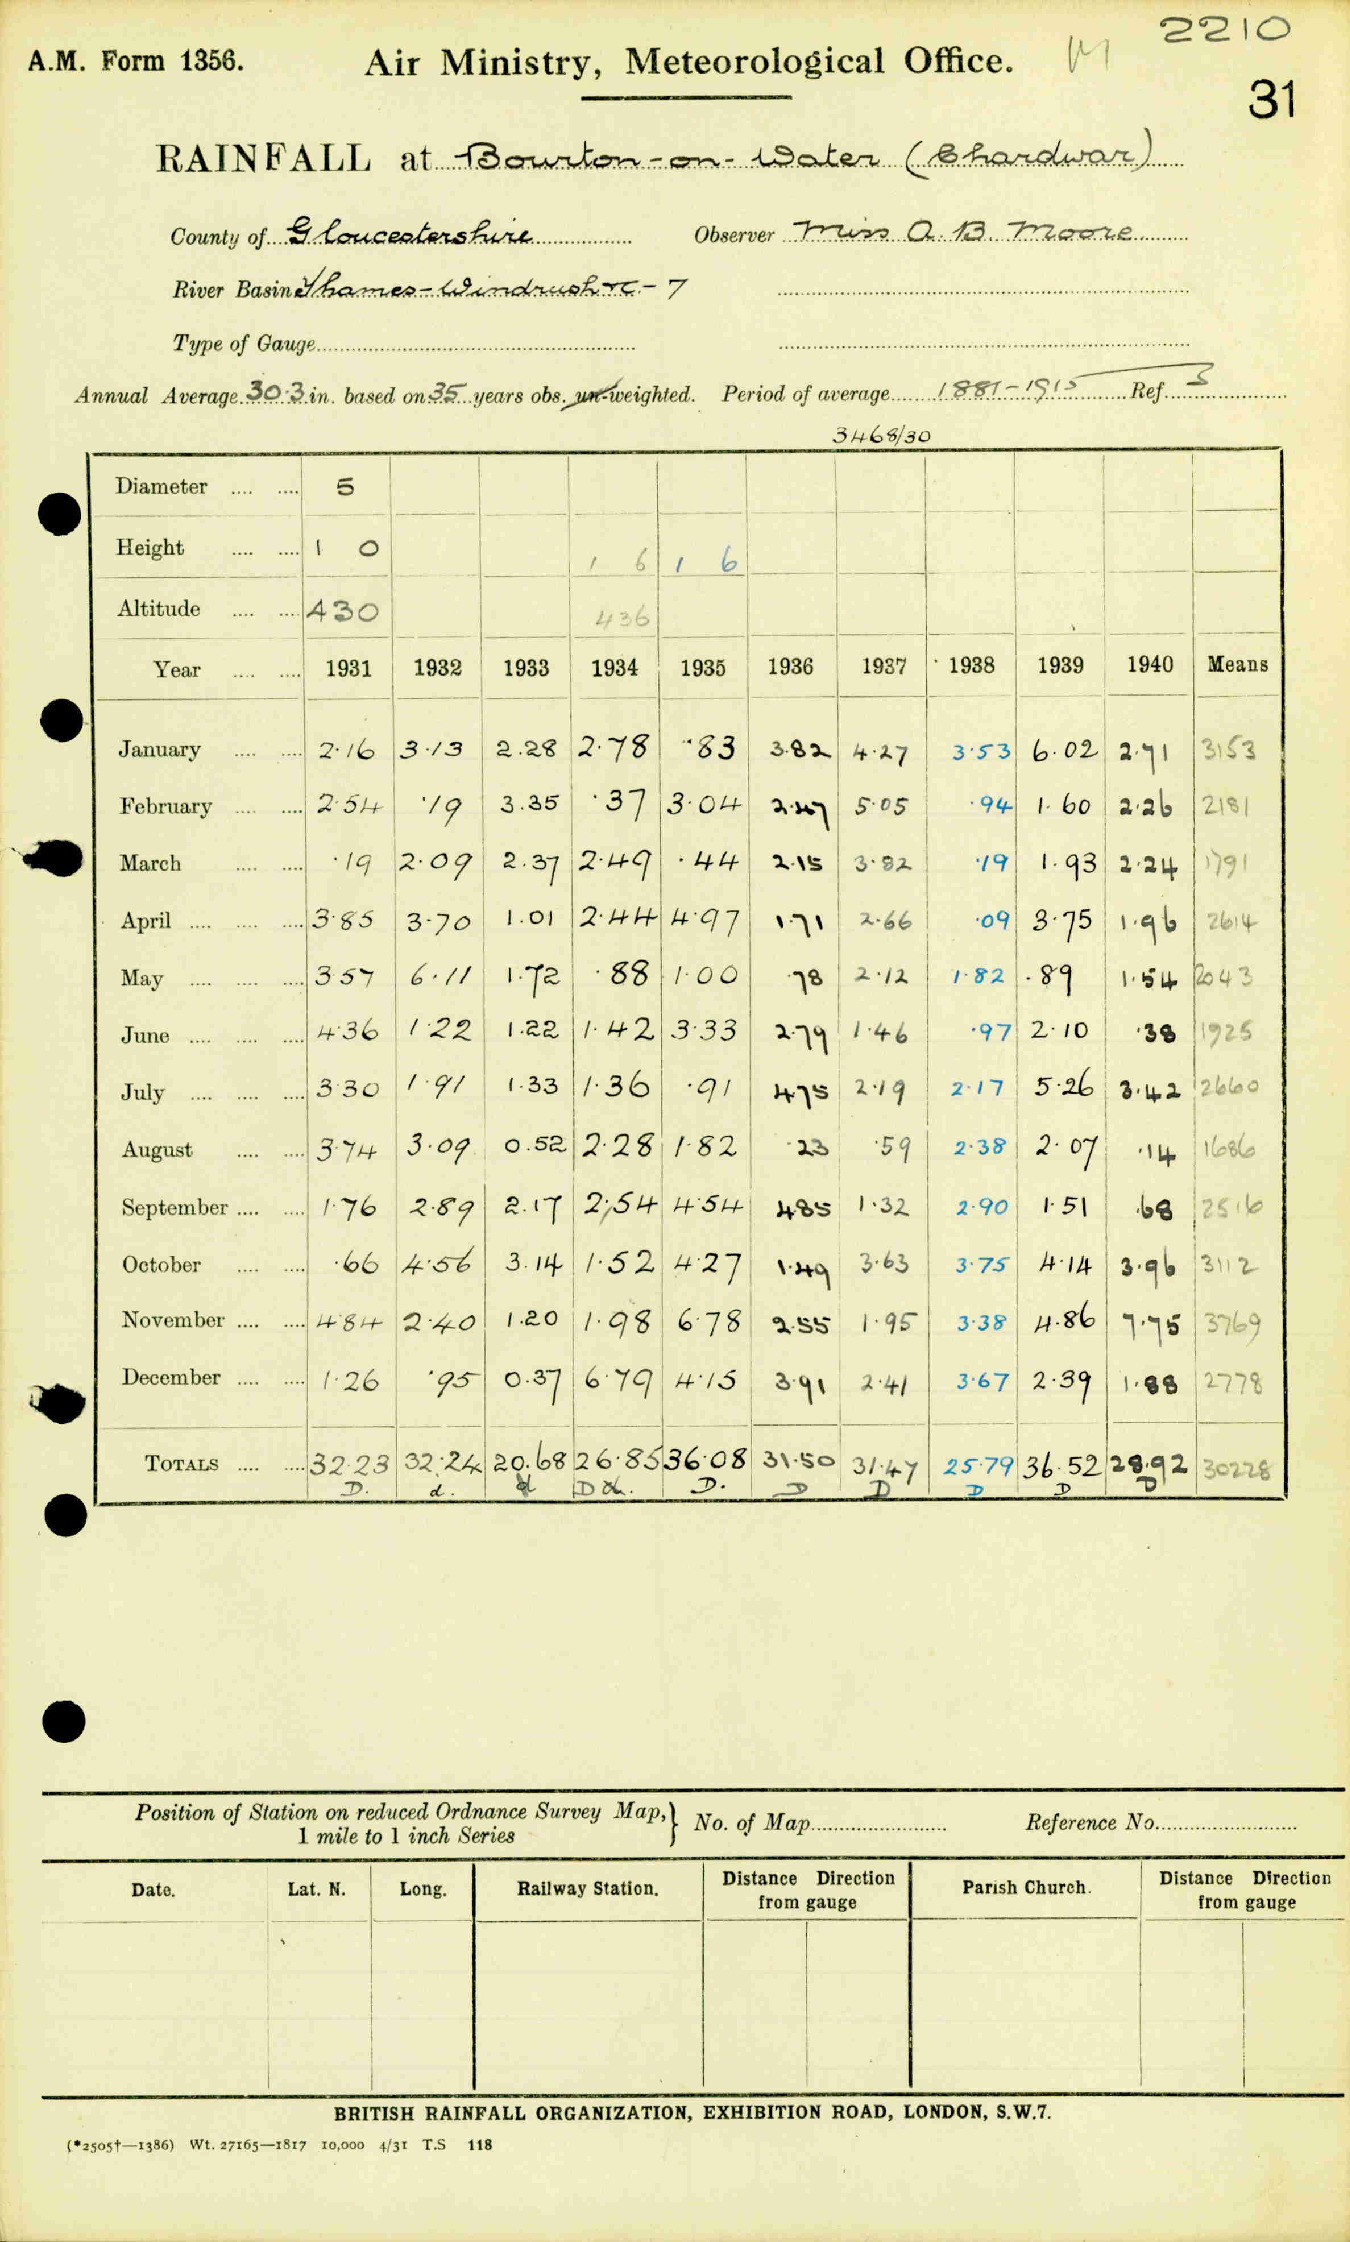 2210
A.M. Form 1356. Air Ministry, Meteorological Office.
31
RAINFALL at Bourton-on-Water (Chardwar)
County of Gloucestershire Observer Miss A. B. Moore
River Basin Thames-Windrush &c - 7
Type of Gauge
Annual Average 30.3 in. based on 35 years obs. un-weighted. Period of average 1881-1915 Ref. 3
3468/30
Diameter .... .... 5
Height .... .... 1 0 1 6 1 6
Altitude .... .... 430 436
Year .... .... 1931 1932 1933 1934 1935 1936 1937 1938 1939 1940 Means
January .... .... 2.16 3.13 2.28 2.78 .83 3.82 4.27 3.53 6.02 2.71 3153
February .... .... 2.54 .19 3.35 .37 3.04 2.47 5.05 .94 1.60 2.26 2181
March .... .... .19 2.09 2.37 2.49 .44 2.15 3.82 .19 1.93 2.24 1791
April .... .... .... 3.85 3.70 1.01 2.44 4.97 1.71 2.66 .09 3.75 1.96 2614
May .... .... .... 3.57 6.11 1.72 .88 1.00 .78 2.12 1.82 .89 1.54 2043
June .... .... .... 4.36 1.22 1.22 1.42 3.33 2.79 1.46 .97 2.10 .38 1925
July .... .... .... 3.30 1.91 1.33 1.36 .91 4.75 2.19 2.17 5.26 3.42 2660
August .... .... 3.74 3.09 0.52 2.28 1.82 .23 .59 2.38 2.07 .14 1686
September .... .... 1.76 2.89 2.17 2.54 4.54 4.85 1.32 2.90 1.51 .68 2516
October .... .... .66 4.56 3.14 1.52 4.27 1.49 3.63 3.75 4.14 3.96 3112
November .... .... 4.84 2.40 1.20 1.98 6.78 2.55 1.95 3.38 4.86 7.75 3769
December .... .... 1.26 .95 0.37 6.79 4.15 3.91 2.41 3.67 2.39 1.88 2778
TOTALS .... .... 32.23 32.24 20.68 26.85 36.08 31.50 31.47 25.79 36.52 28.92 30228
D. d. d D d. D. D D D D D
Position of Station on reduced Ordnance Survey Map, } No. of Map Reference No.
1 mile to 1 inch Series
Date. Lat. N. Long. Railway Station. Distance Direction from gauge Parish Church. Distance Direction from gauge
BRITISH RAINFALL ORGANIZATION, EXHIBITION ROAD, LONDON, S.W.7.
(*2505†—1386) Wt. 27165—1817 10,000 4/31 T.S 118